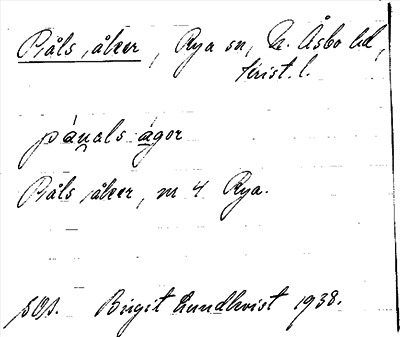 Påls åker, Rya sn, N. Åsbo hd,
Krist. l.
páu̯als ágor
Påls åker, m 4 Rya.
sOp. Birgit Lundkvist 1938.